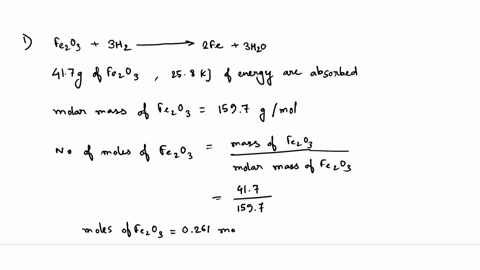 1) Fe2O3 + 3H2 ⟶ 2Fe + 3H2O
41.7g of Fe2O3 , 25.8 kJ of energy are absorbed
molar mass of Fe2O3 = 159.7 g/mol
No of moles of Fe2O3 = mass of Fe2O3 / molar mass of Fe2O3
= 41.7 / 159.7
moles of Fe2O3 = 0.261 mo